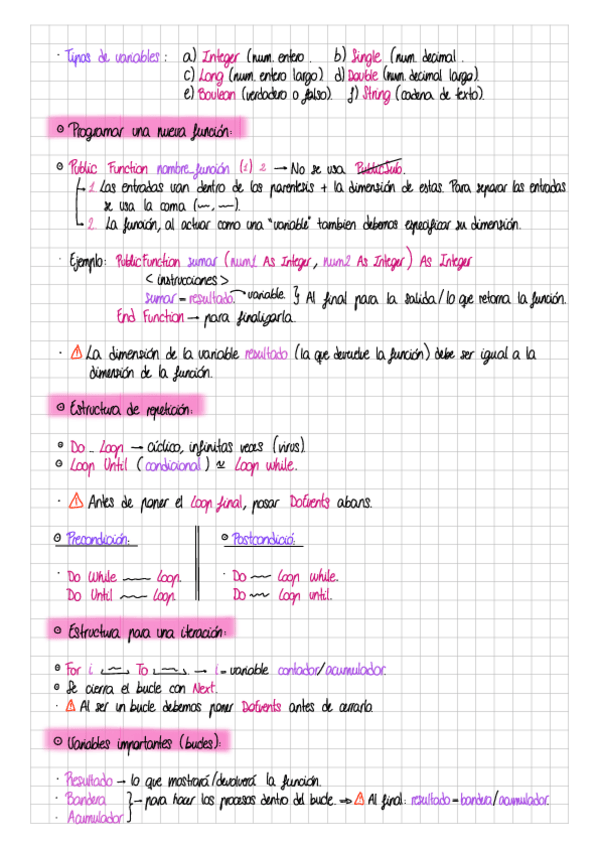 · Tipos de variables: a) Integer (num. entero. b) Single (num. decimal.
c) Long (num. entero largo) d) Double (num. decimal largo).
e) Boolean (verdadero o falso). f) String (cadena de texto).
Programar una nueva función:
Public Function nombre_función (1) 2 → No se usa Public Sub.
1. Las entradas van dentro de los parentesis + la dimensión de estas. Para separar las entradas
se usa la coma (~, ~).
2. La función, al actuar como una "variable" tambien debemos especificar su dimensión.
· Ejemplo: Public Function sumar (num1 As Integer, num2 As Integer) As Integer
<instrucciones>
sumar = resultado. → variable. } Al final para la salida/lo que retorna la función.
End Function → para finalizarla.
· ⚠ La dimensión de la variable resultado (la que devuelve la función) debe ser igual a la
dimensión de la función.
Estructura de repetición:
Do _ Loop → cíclico, infinitas veces (virus).
Loop Until (condicional) ≈ Loop while.
· ⚠ Antes de poner el Loop final, posar DoEvents abans.
Precondición: Postcondició:
· Do While ~ Loop. · Do ~ Loop while.
Do Until ~ Loop. Do ~ Loop until.
Estructura para una iteración:
For i ~ To ~ → i = variable contador/acumulador.
Se cierra el bucle con Next.
· ⚠ Al ser un bucle debemos poner DoEvents antes de cerrarlo
Variables importantes (bucles):
· Resultado → lo que mostrará/devolverá la función.
· Bandera } – para hacer los procesos dentro del bucle. ⇒ ⚠ Al final: resultado = bandera/acumulador.
· Acumulador